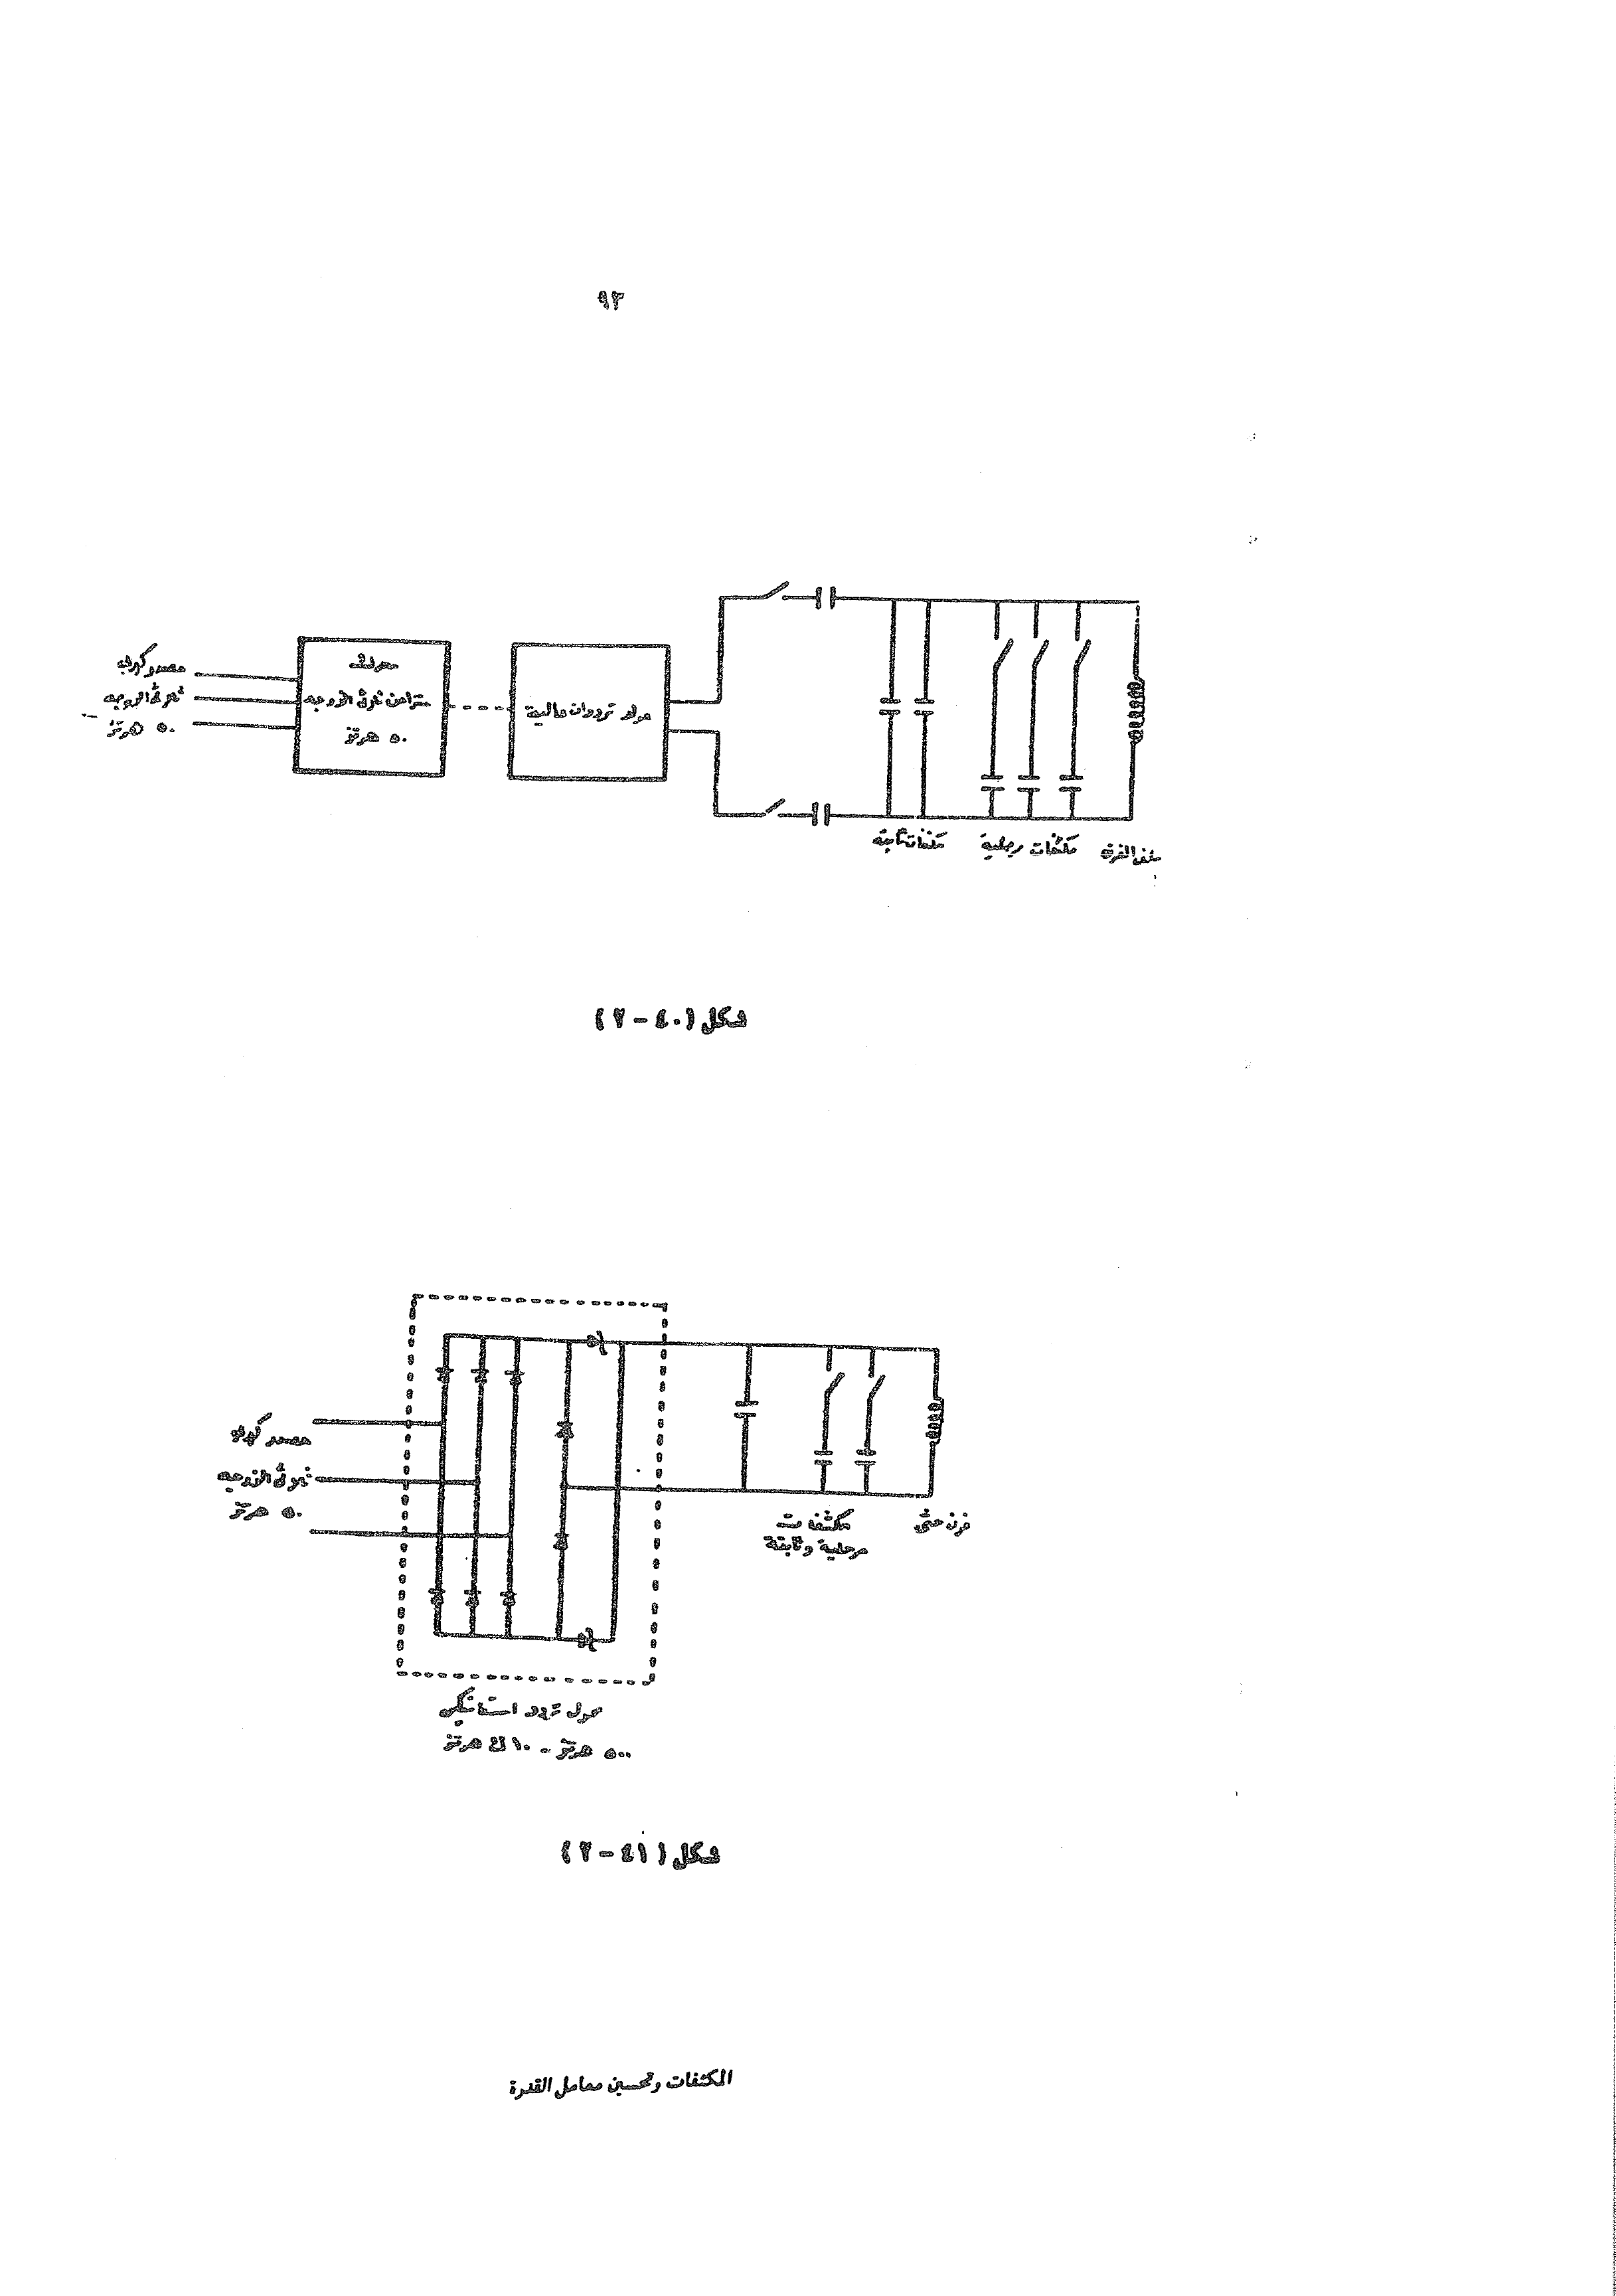 ٩٣
مصدر كهربى
ثلاثى الأوجه
٥٠ هرتز
محرك
متزامن ثلاثى الأوجه
٥٠ هرتز
مولد ترددات عالية
مكثفات ثابتة
مكثفات مرحلية
ملف الفرن
شكل (٤٠-٢)
مصدر كهربى
ثلاثى الأوجه
٥٠ هرتز
مكثفات
مرحلية وثابتة
فرن حثى
محول تردد استاتيكى
٥٠٠ هرتز - ١٠ ك هرتز
شكل (٤١-٢)
المكثفات وتحسين معامل القدرة